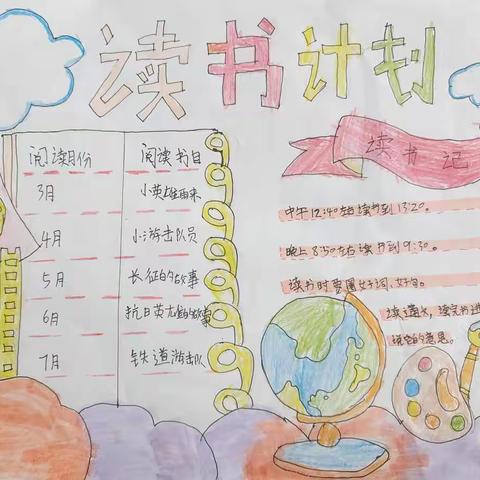 读书计划
阅读月份 阅读书目
3月 小英雄雨来
4月 小游击队员
5月 长征的故事
6月 抗日英雄的故事
7月 铁道游击队
读书记
中午12:40左右读书到13:20。
晚上8:50左右读书到9:30。
读书时要圈好词、好句。